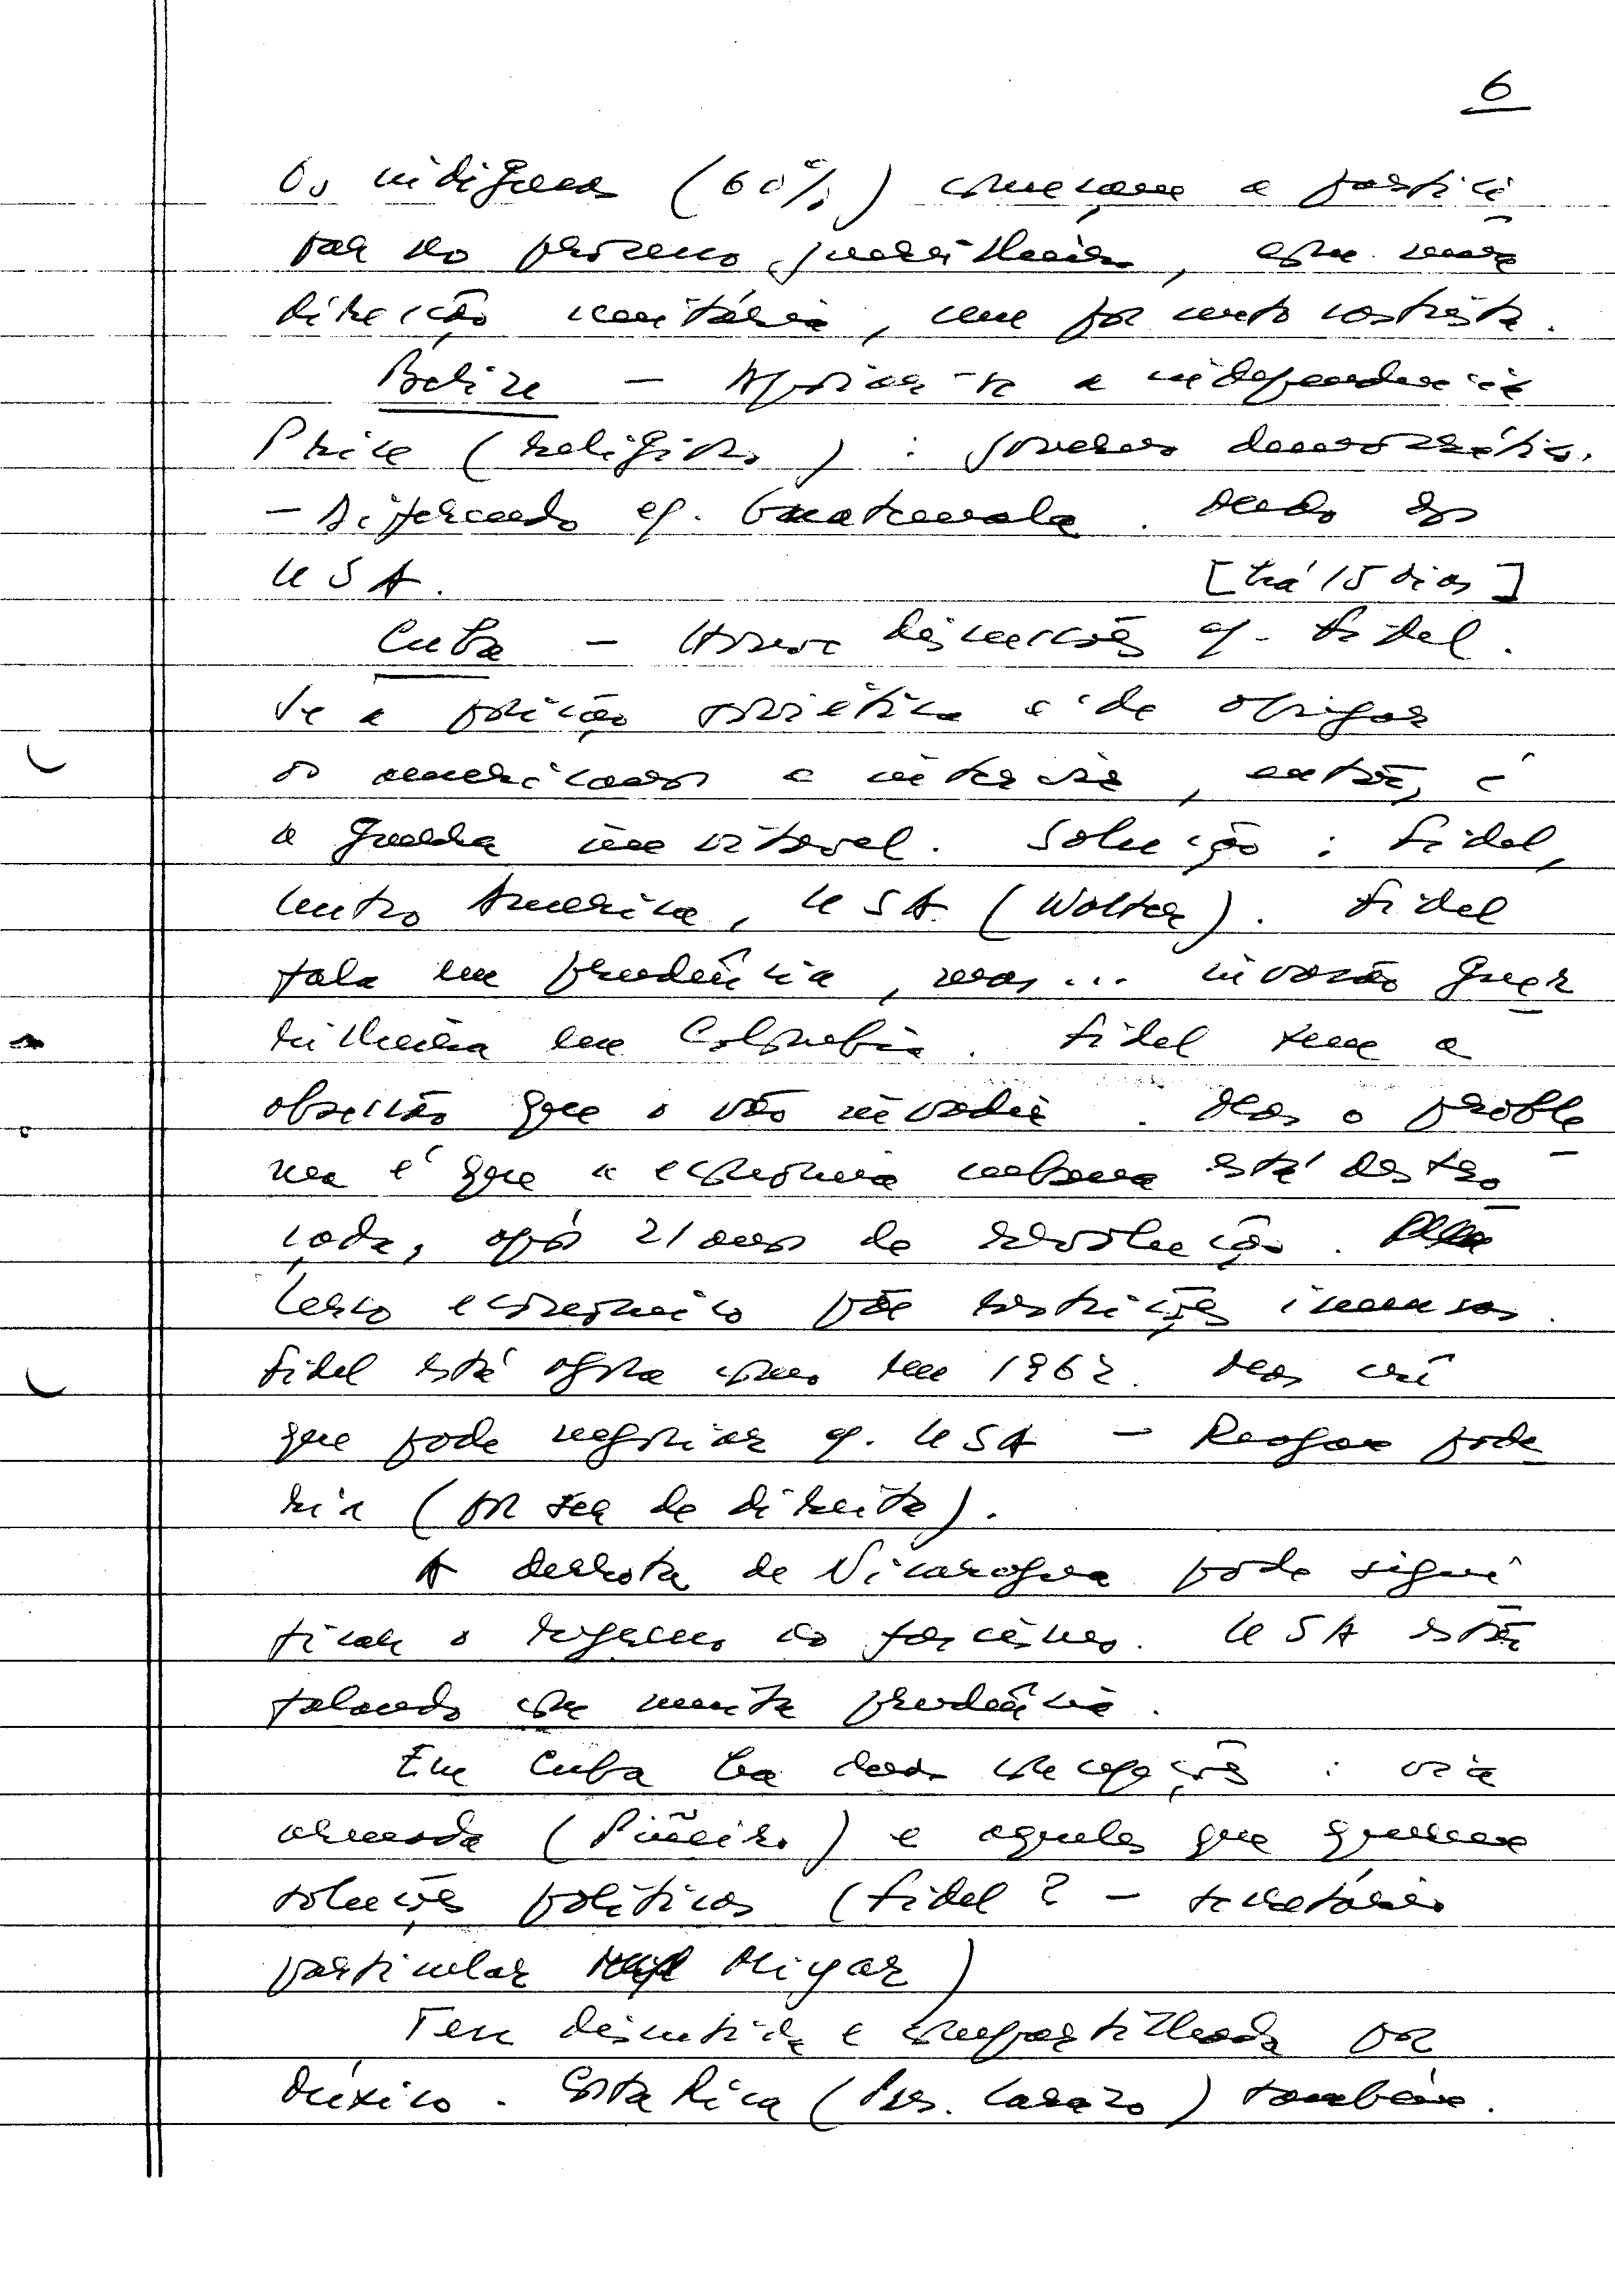 6
Os indígenas (60%) começam a partici
par no processo guerrilheiro, com uma
direção unitária, um por cento castrista.
Belize — Apoiar-se a independência
Price (religioso): governo democrático.
— Diferendo c/. Guatemala. Medo dos
USA. [há 15 dias]
Cuba — Houve discussões c/. Fidel.
Se a posição soviética é de obrigar
os americanos a intervir, então, é
a guerra inevitável. Solução: Fidel,
Centro America, USA (Walter). Fidel
fala em prudência, mas... invasão guer
rilheira em Colombia. Fidel tem a
obsessão que o vão invadir. Mas o proble
ma é que a economia cubana está destro
çada, após 21 anos de revolução.
Cerco economico põe restrições imensas.
Fidel está agora como em 1962. Mas crê
que pode negociar c/. USA — Reagan pode
ria (por ser de direita).
A derrota de Nicaragua pode signi
ficar o regresso ao fascismo. USA estão
falando com muita prudência.
Em Cuba ha duas concepções: via
armada (Piñeiro) e aqueles que querem
soluções políticas (Fidel? — secretário
particular Miyar)
Tem discutida e compartilhada por
México. Costa Rica (Pres. Carazo) também.